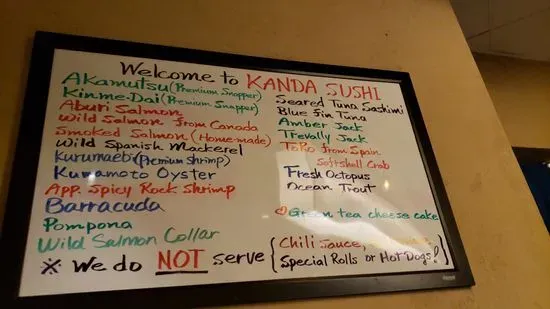 Welcome to KANDA SUSHI
Akamutsu (Premium Snopper)
Kinme-Dai (Premium Snapper)
Aburi Salmon
Wild Salmon from Canada
Smoked Salmon (Home-made)
Wild Spanish Mackerel
Kurumaebi (Premium shrimp)
Kumamoto Oyster
App. Spicy Rock Shrimp
Barracuda
Pompona
Wild Salmon Collar
Seared Tuna Sashimi
Blue fin Tuna
Amber Jack
Trevally Jack
ToRo from Spain
Softshell Crab
Fresh Octopus
Ocean Trout
Green tea cheese cake
※ We do NOT serve { Chili Sauce,
Special Rolls or Hot Dogs!